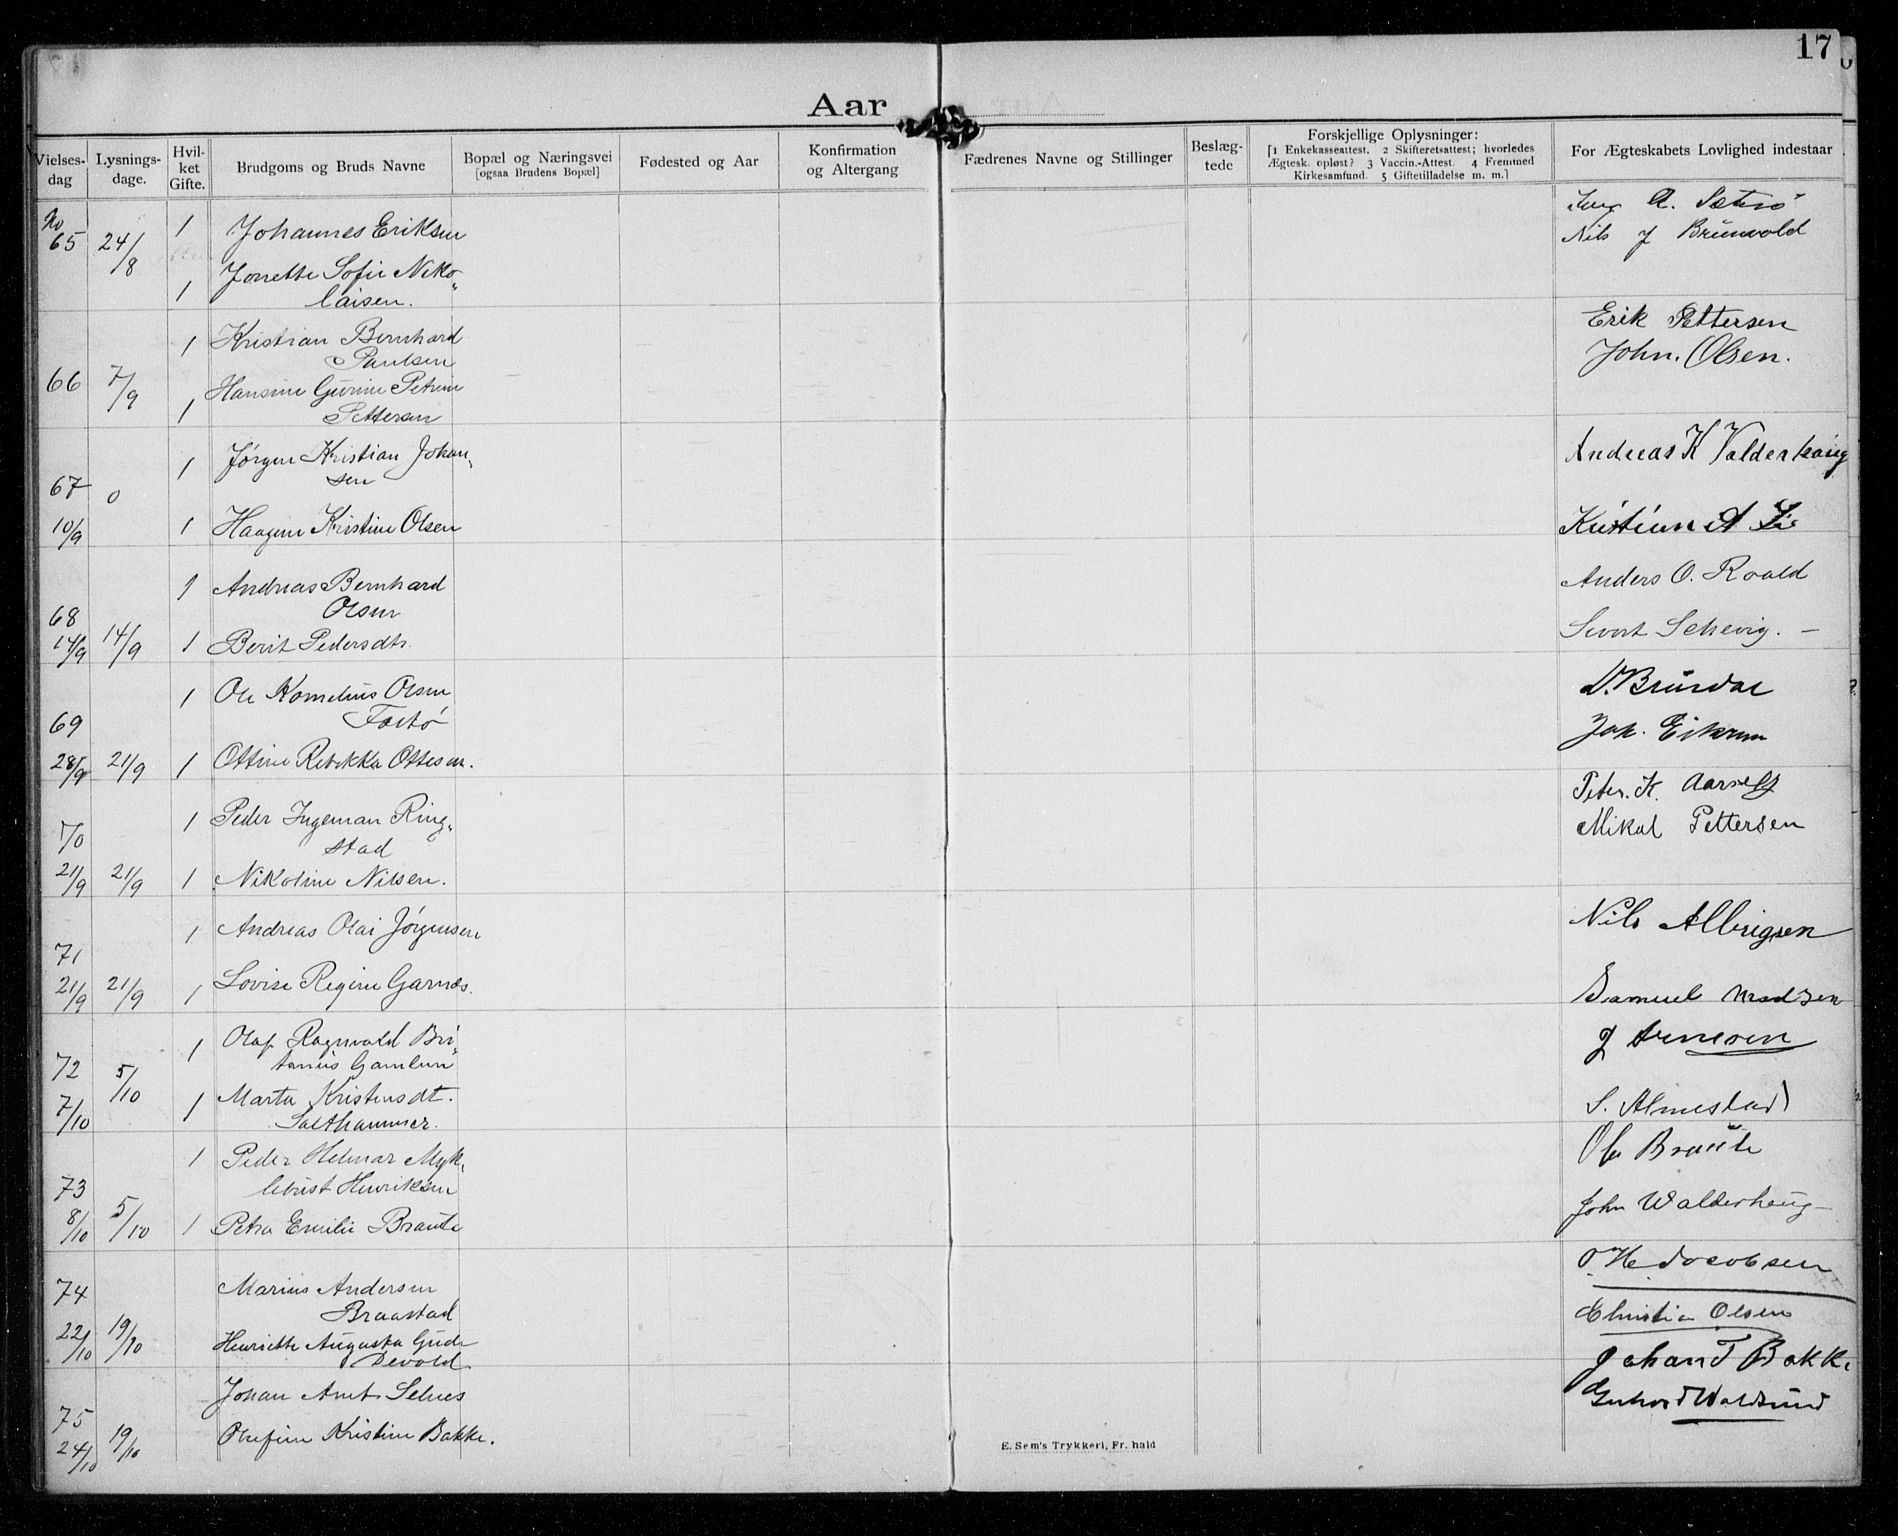 17
Aar
Vielsesdag
Lysningsdage.
Hvilket Gifte.
Brudgoms og Bruds Navne
Bopæl og Næringsvei [ogsaa Brudens Bopæl]
Fødested og Aar
Konfirmation og Altergang
Fædrenes Navne og Stillinger
Beslægtede
Forskjellige Oplysninger:
[1 Enkekasseattest. 2 Skifteretsattest; hvorledes
Ægtesk. opløst? 3 Vaccin.-Attest. 4 Fremmed
Kirkesamfund. 5 Giftetilladelse m. m.]
For Ægteskabets Lovlighed indestaar
No 65 24/8 1 Johannes Eriksen
1 Jonette Sofie Niko„
laisen.
A. Sætrø
Nils J Brunvold
1 Kristian Bernhard
Paulsen
66 7/9 Hansine Gurine Petrine
1 Pettersen
Erik Pettersen
John. Olsen.
1 Jørgen Kristian Johan„
sen
67 0
10/9 1 Haagine Kristine Olsen
Andreas K Valderhaug
Kristian A Lie
1 Andreas Bernhard
68 Olsen
14/9 14/9 1 Berit Pedersdtr.
Anders O. Roald
Sivert Schevig. –
1 Ole Kornelius Olsen
69 Fastø
28/9 21/9 1 Ottine Rebekka Ottesen.
D. Brusdal
Joh. Eikrem
1 Peder Ingeman Ring„
70 stad
21/9 21/9 1 Nikoline Nilsen.
Peter. K. Aarseth
Mikal Pettersen
1 Andreas Olai Jørgensen
71
21/9 21/9 1 Lovise Regine Garnes.
Nils Albrigsen
Samuel Madsen
1 Olaf Ragnvald Bri„
72 5/10 tanius Gamlem
7/10 1 Marta Kristensdt.
Salthammer.
J Arnesen
S. Almestad
1 Peder Helmar Myk„
73 lebust Henriksen
8/10 5/10 1 Petra Emilie Braute
Ole Braute
John Walderhaug
74 Marius Andersen
Braastad
22/10 19/10 Henriette Augusta Gude
Devold.
O. H. Jacobsen
Christian Olsen
Johan Arnt Selnes
75
24/10 19/10 Olefine Kristine Bakke.
Johan T Bakke
Waldsund
E. Sem's Trykkeri, Fr. hald